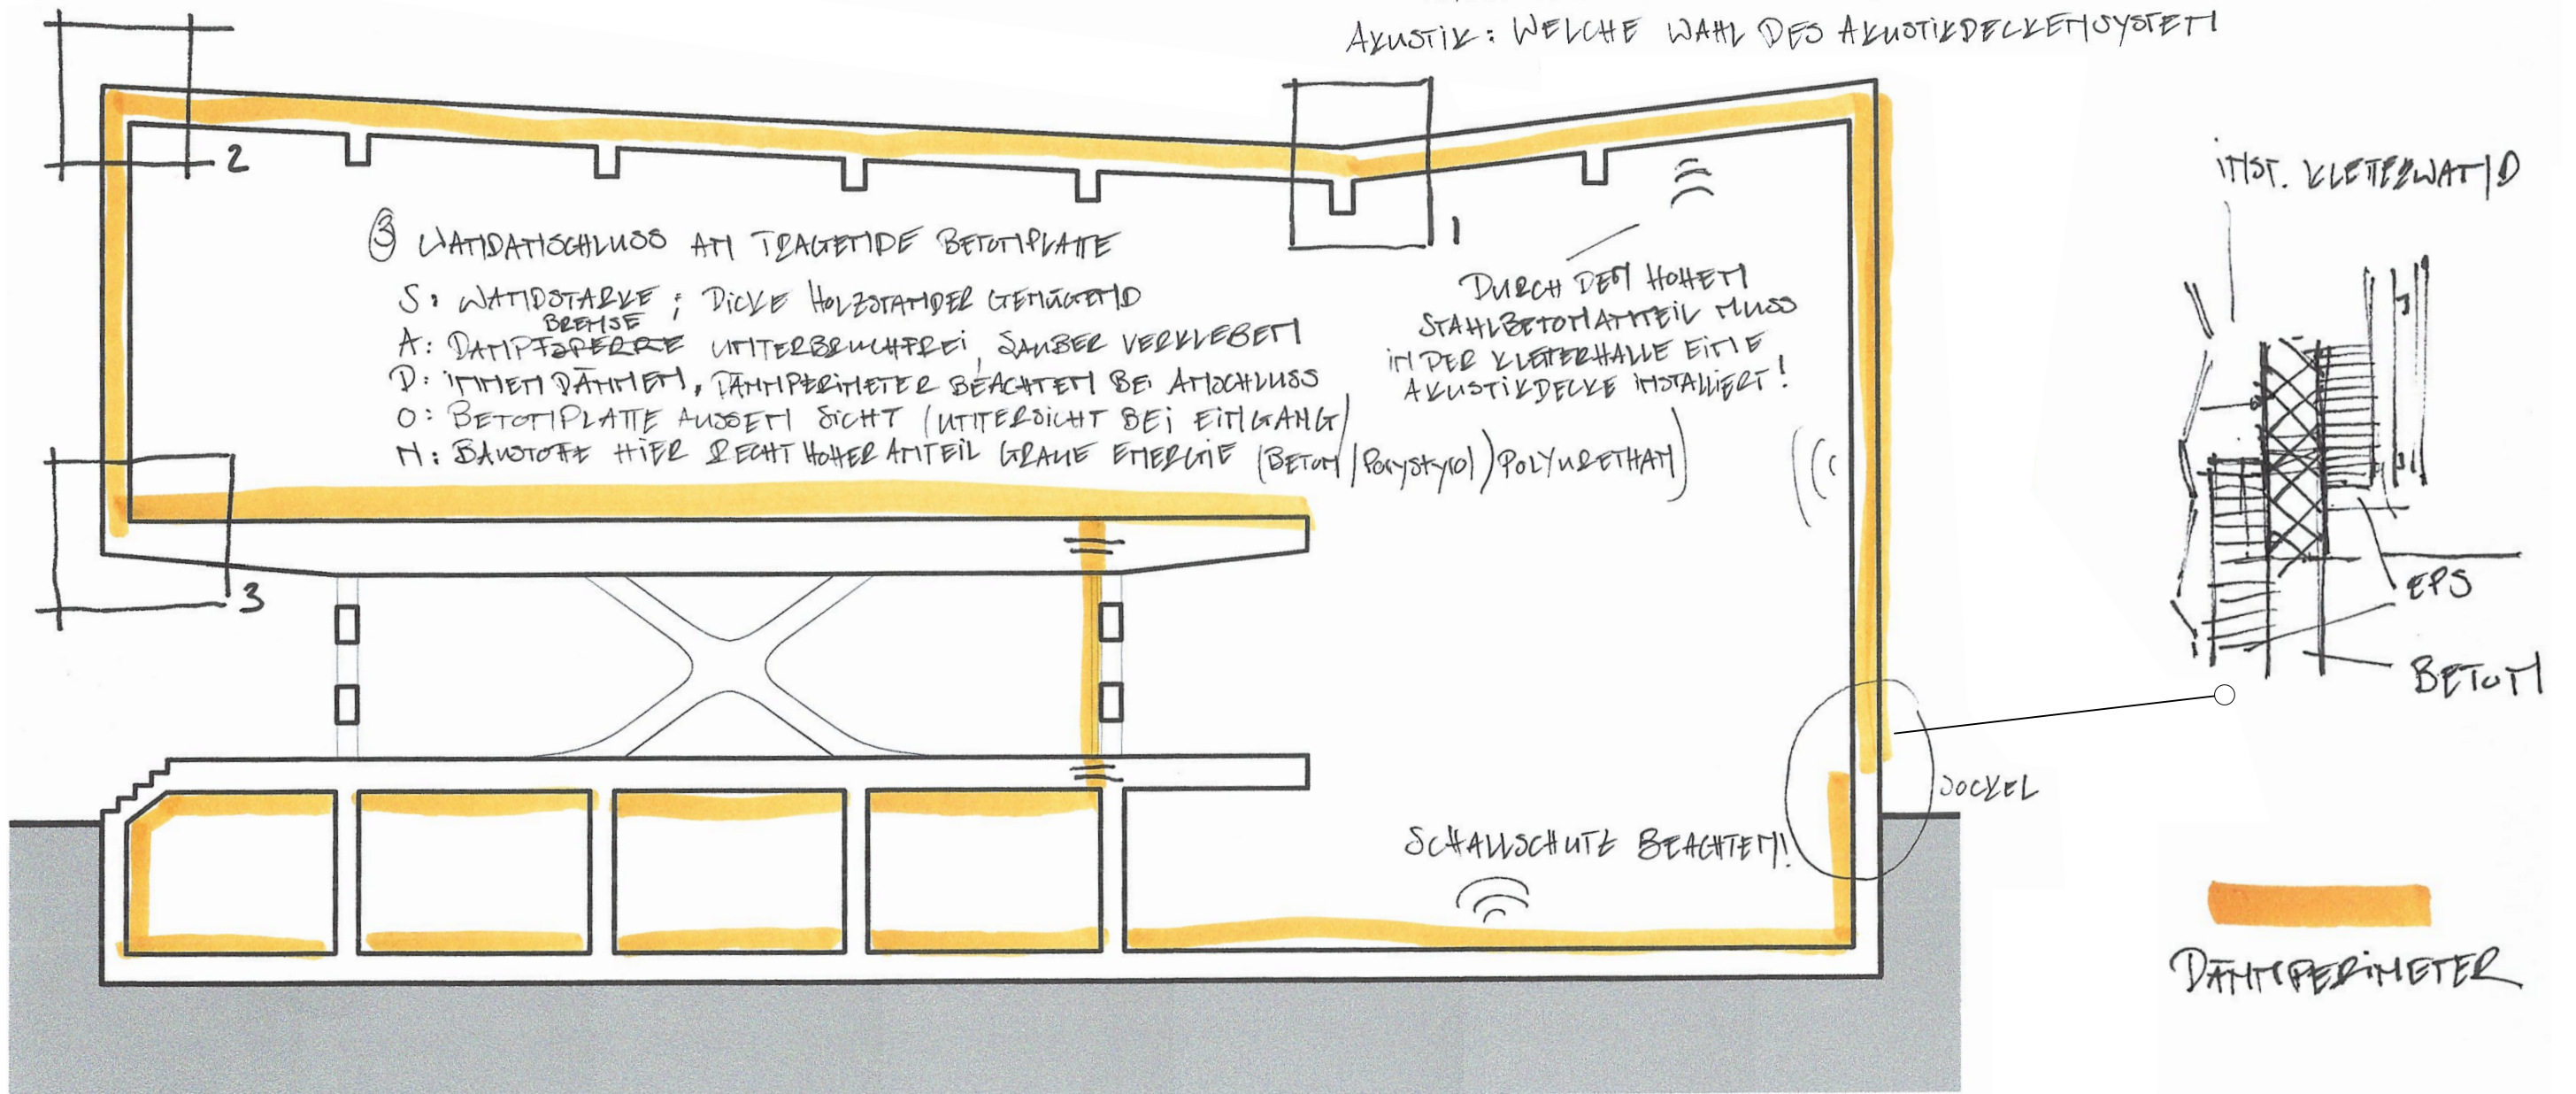 AKUSTIK: WELCHE WAHL DES AKUSTIKDECKENSYSTEM
2
1
INST. KLETTERWAND
③ WANDANSCHLUSS AN TRAGENDE BETONPLATTE
S: WANDSTÄRKE; DICKE HOLZSTÄNDER GENÜGEND
BREMSE
A: DAMPFSPERRE UNTERBRUCHFREI, SAUBER VERKLEBEN
D: INNEN DÄMMEN, DÄMMPERIMETER BEACHTEN BEI ANSCHLUSS
O: BETONPLATTE AUSSEN SICHT (UNTERSICHT BEI EINGANG)
N: BAUSTOFFE HIER RECHT HOHER ANTEIL GRAUE ENERGIE (BETON/Polystyrol) POLYURETHAN)
DURCH DEN HOHEN
STAHLBETONANTEIL MUSS
IN DER KLETTERHALLE EINE
AKUSTIKDECKE INSTALLIERT!
3
EPS
BETON
SOCKEL
SCHALLSCHUTZ BEACHTEN!
DÄMMPERIMETER